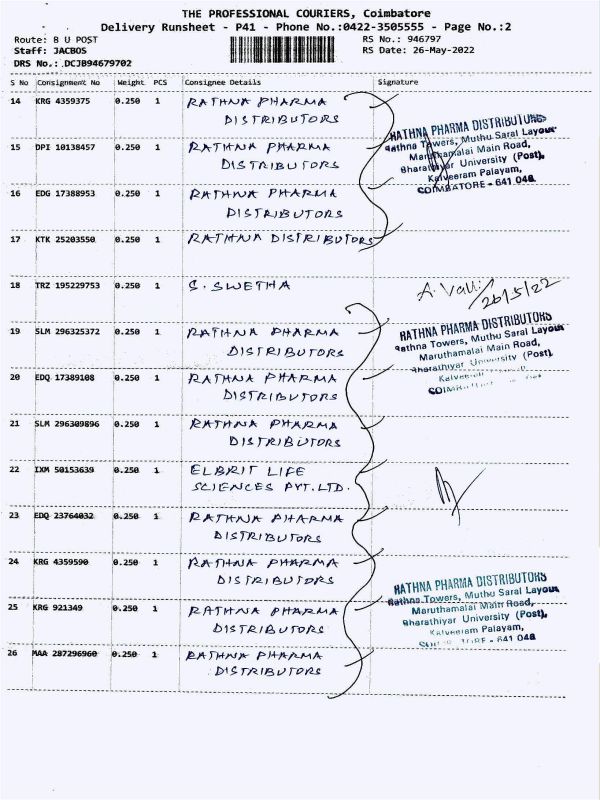 THE PROFESSIONAL COURIERS, Coimbatore
Delivery Runsheet - P41 - Phone No.:0422-3505555 - Page No.:2
Route: 8 U POST RS No.: 946797
Staff: JACBOS RS Date: 26-May-2022
DRS No.: DCJB94679702
S No Consignment No Weight PCS Consignee Details Signature
14 KRG 4359375 0.250 1 RATHNA PHARMA
DISTRIBUTORS
RATHNA PHARMA DISTRIBUTORS
Rathna Towers, Muthu Saral Layout
Maruthamalai Main Road,
Bharathiyar University (Post),
Kalveeram Palayam,
COIMBATORE - 641 046.
15 DPI 10138457 0.250 1 RATHNA PHARMA
DISTRIBUTORS
16 EDG 17388953 0.250 1 RATHNA PHARMA
DISTRIBUTORS
17 KTK 25203550 0.250 1 RATHNA DISTRIBUTORS
18 TRZ 195229753 0.250 1 S. SWETHA
A. Valli
26/5/22
19 SLM 296325372 0.250 1 RATHNA PHARMA
DISTRIBUTORS
RATHNA PHARMA DISTRIBUTORS
Rathna Towers, Muthu Saral Layout
Maruthamalai Main Road,
Bharathiyar University (Post),
20 EDQ 17389108 0.250 1 RATHNA PHARMA
DISTRIBUTORS
21 SLM 296309896 0.250 1 RATHNA PHARMA
DISTRIBUTORS
22 IXM 50153639 0.250 1 ELBRIT LIFE
SCIENCES PVT. LTD.
23 EDQ 23764032 0.250 1 RATHNA PHARMA
DISTRIBUTORS
24 KRG 4359590 0.250 1 RATHNA PHARMA
DISTRIBUTORS
RATHNA PHARMA DISTRIBUTORS
Rathna Towers, Muthu Saral Layout
Maruthamalai Main Road,
Bharathiyar University (Post),
Kalveeram Palayam,
641 046
25 KRG 921349 0.250 1 RATHNA PHARMA
DISTRIBUTORS
26 MAA 287296960 0.250 1 RATHNA PHARMA
DISTRIBUTORS